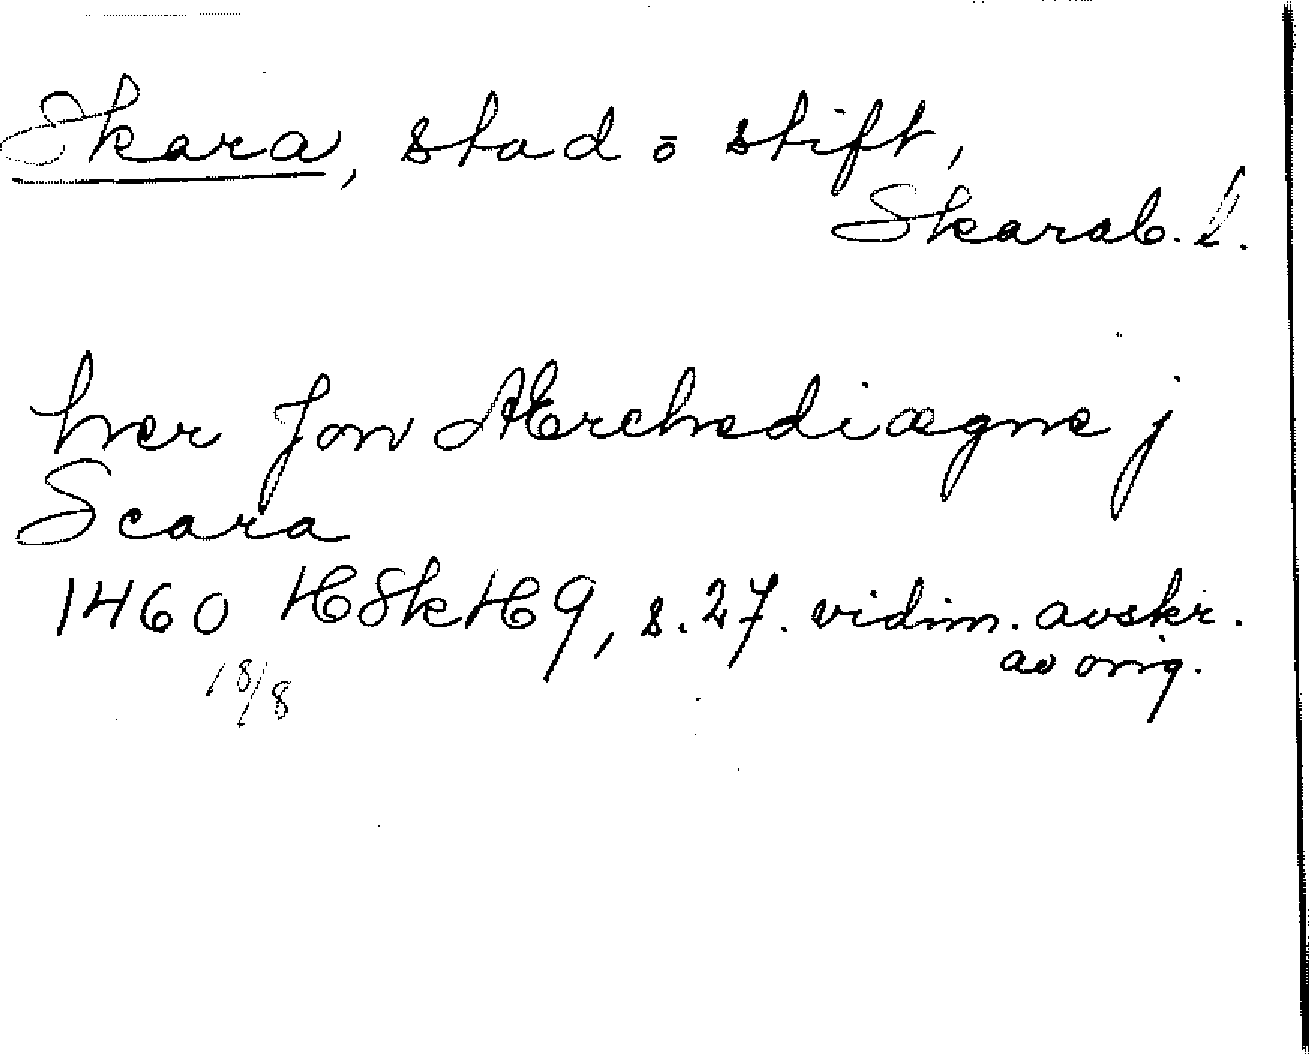 Skara, stad o stift,
Skarab. l.
her Jon Ærchediægne j
Scara
1460 HSkH 9, s. 27. vidim. avskr.
18/8 av orig.